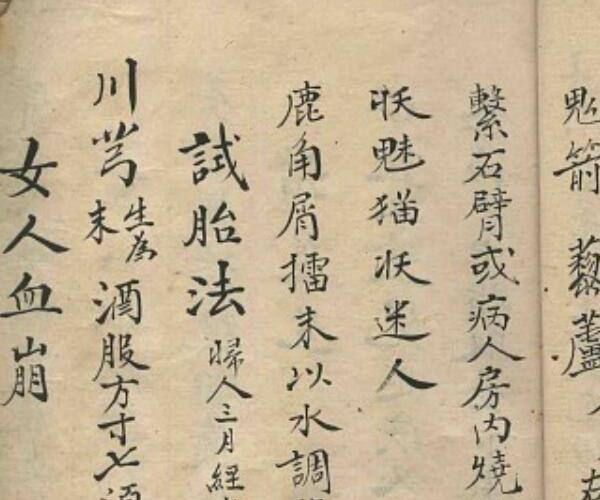 鬼箭 藜蘆
繫石臂或病人房内燒
妖魅猫妖迷人
鹿角屑擂末以水調
試胎法 婦人三月経
川芎 生為末 酒服方寸匕酒
女人血崩